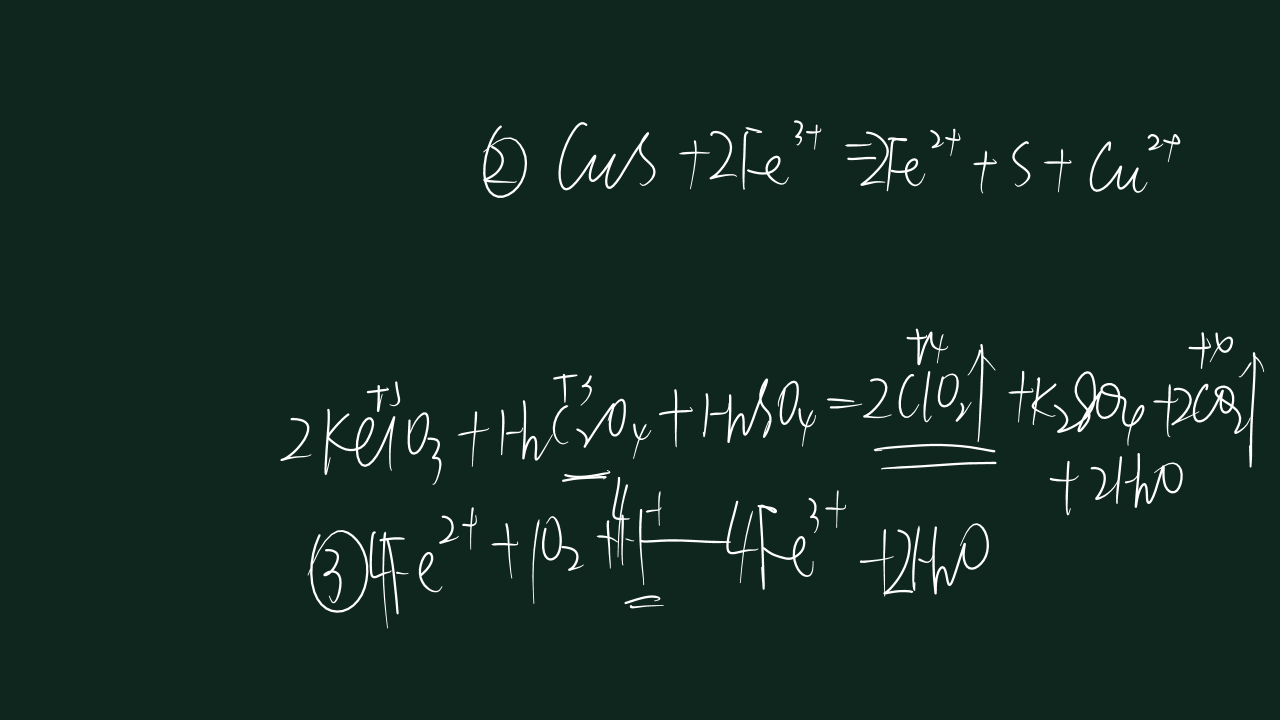 ② CuS + 2Fe³⁺ = 2Fe²⁺ + S + Cu²⁺
+4
+5 +3
2KClO₃ + H₂C₂O₄ + H₂SO₄ = 2ClO₂↑ + K₂SO₄ + 2CO₂↑
+ 2H₂O
③ 4Fe²⁺ + 1O₂ + 4H⁺ — 4Fe³⁺ + 2H₂O